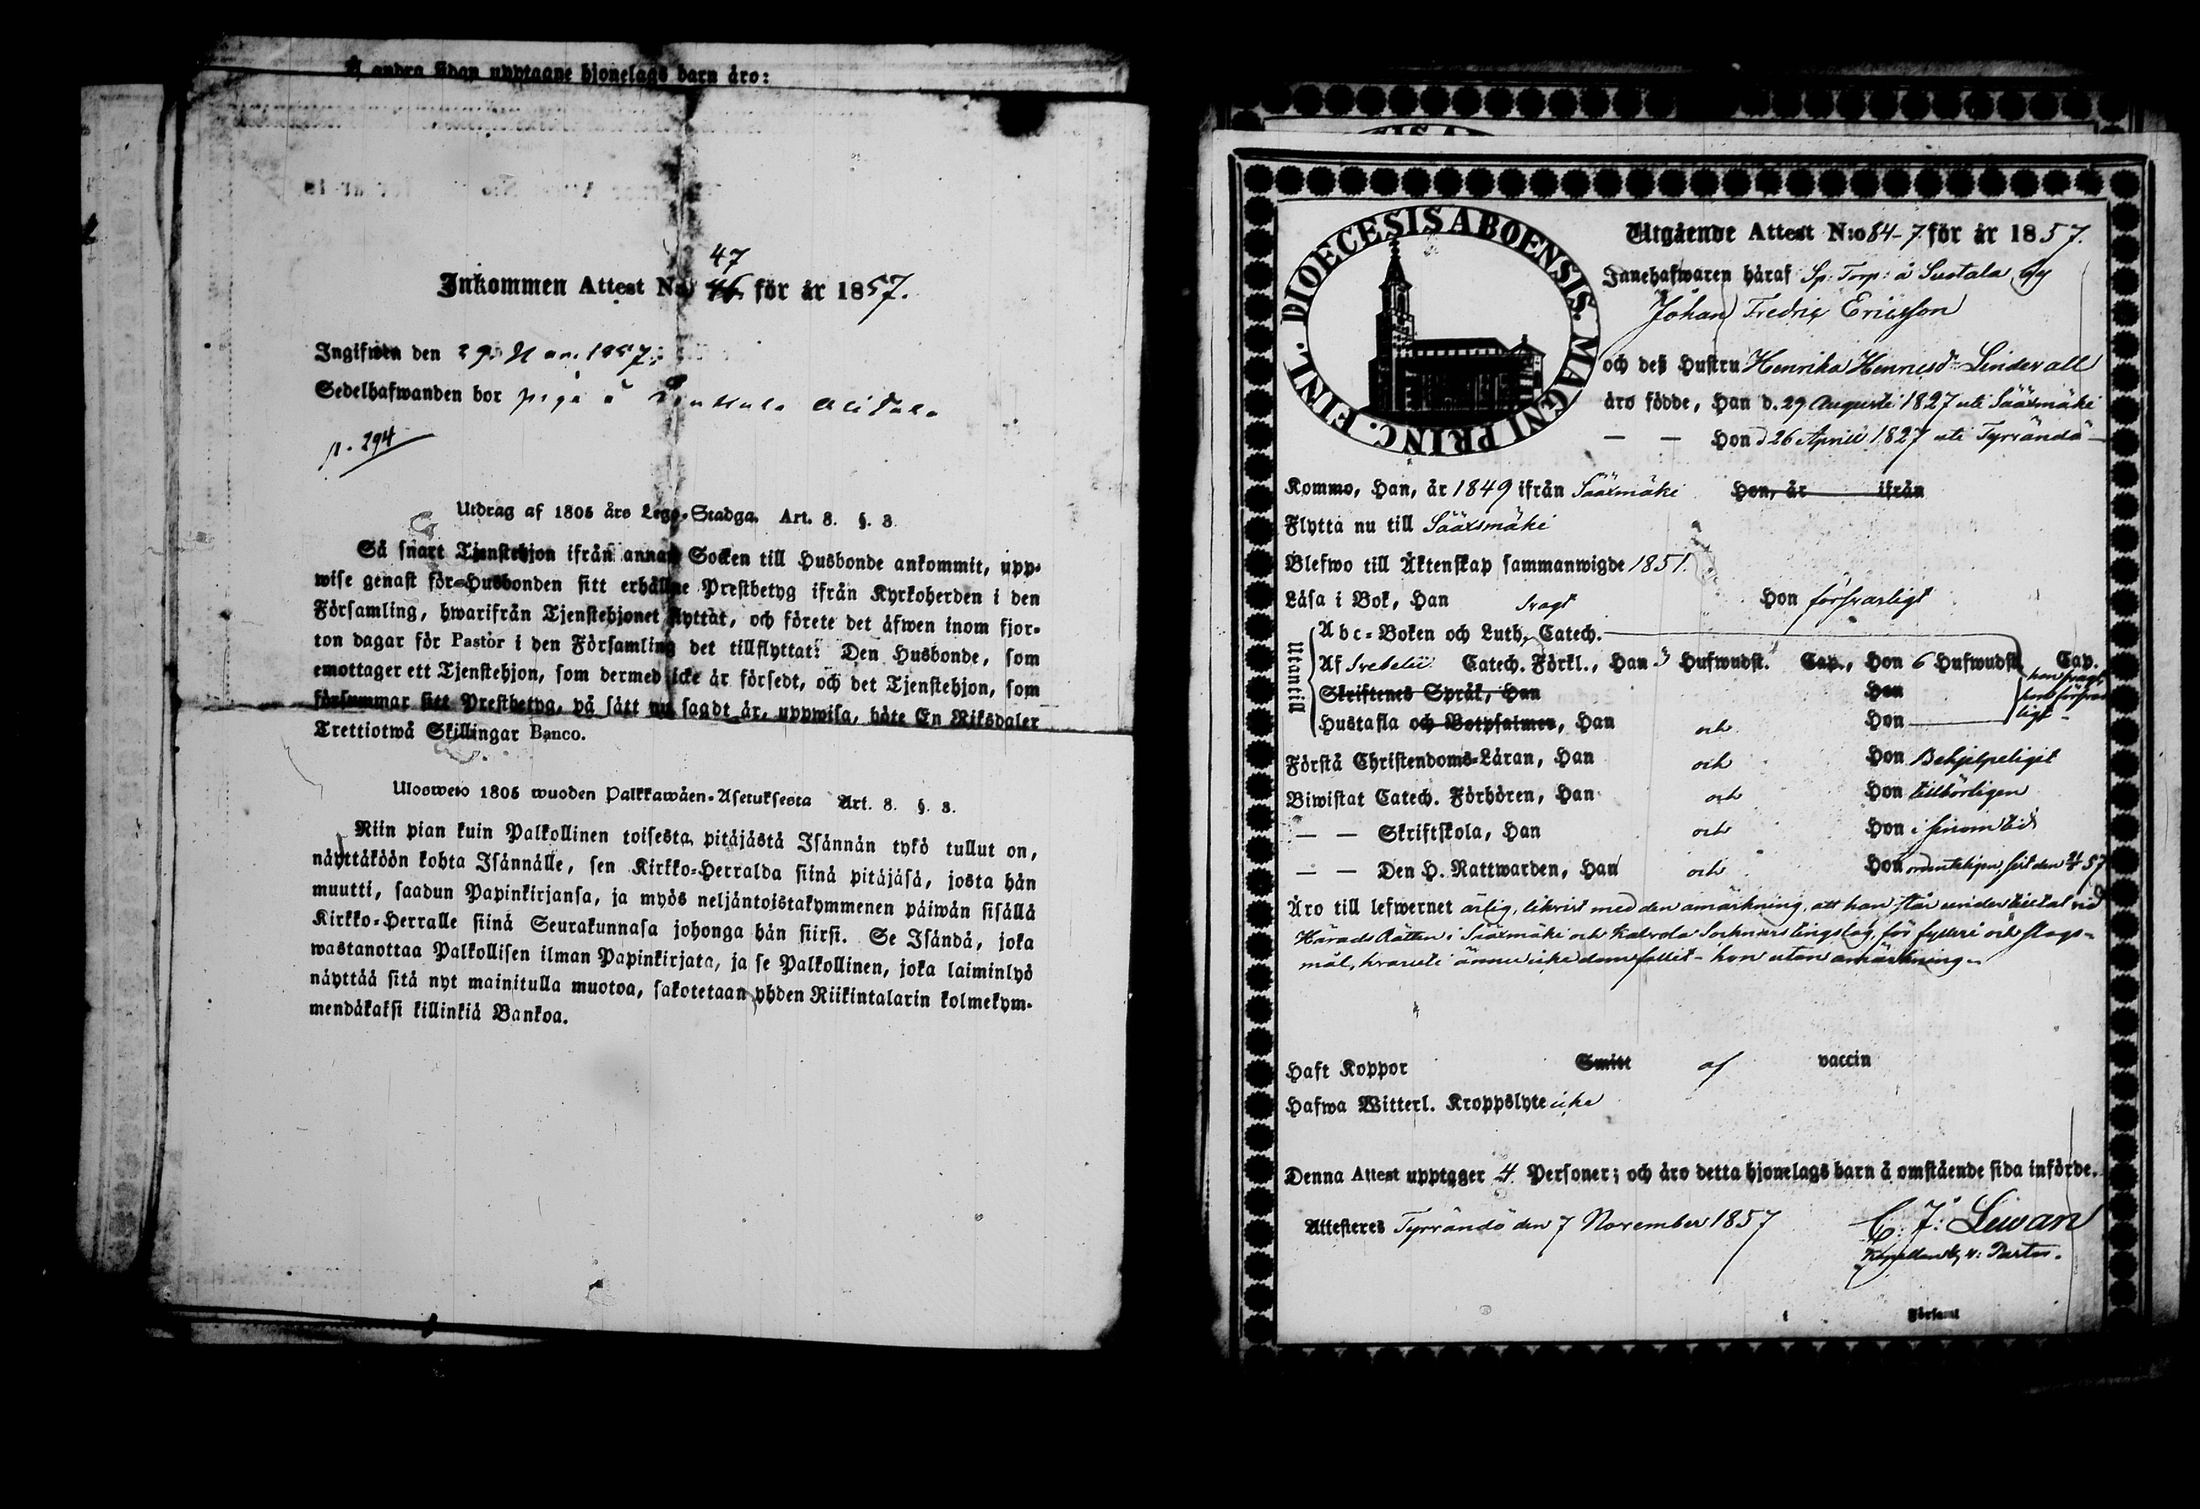 å andra sidan upptagne hjonelags barn äro:
47
Inkommen Attest No 46 för år 1857.
Ingifwen den 29 Nov. 1857.
Sedelhafwanden bor piga å Alitalo
p. 294
Utdrag af 1805 års Lego-Stadga. Art. 8. §. 8.
Så snart Tjenstehjon ifrån annan Socken till Husbonde ankommit, upp-
wise genast för Husbonden sitt erhållne Prestbetyg ifrån Kyrkoherden i den
Församling, hwarifrån Tjenstehjonet flyttat, och förete det äfwen inom fjor-
ton dagar för Pastor i den Församling det tillflyttat: Den Husbonde, som
emottager ett Tjenstehjon, som dermed icke är försedt, och det Tjenstehjon, som
försummar sitt Prestbetyg, på sätt nu sagdt är, uppwisa, böte En Riksdaler
Trettiotwå Skillingar Banco.
Uloswetö 1805 wuoden Palkkawäen-Asetuksesta Art. 8. §. 8.
Niin pian kuin Palkollinen toisesta pitäjästä Isännän tykö tullut on,
näyttäköön kohta Isännälle, sen Kirkko-Herralda siinä pitäjäsä, josta hän
muutti, saadun Papinkirjansa, ja myös neljäntoistakymmenen päiwän sisällä
Kirkko-Herralle siinä Seurakunnasa johonga hän siirsi. Se Isändä, joka
wastanottaa Palkollisen ilman Papinkirjata, ja se Palkollinen, joka laiminlyö
näyttää sitä nyt mainitulla muotoa, sakotetaan yhden Riikintalarin kolmekym-
mendäkaksi killinkiä Bankoa.
DIOECESIS ABOENSIS. MAGNI PRINC. FINL.
Utgående Attest N:o 84-7 för år 1857.
Innehafwaren häraf Sp: Torp: å Sustala by
Johan Fredric Ericsson
och deß Hustru Henrika Henricsdr Lindevall
äro födde, Han d. 29 Augusti 1827 uti Sääxmäki
— — Hon d 26 Aprill 1827 uti Tyrvändö
Kommo, Han, år 1849 ifrån Sääxmäki Hon, år ifrån
Flytta nu till Sääxmäki
Blefwo till Äktenskap sammanwigde 1851.
Läsa i Bok, Han svagt Hon försvarligt
Utantill
Abc-Boken och Luth. Catech.
Af Svebelii Catech. Förkl., Han 3 Hufwudst. Cap., Hon 6 Hufwudst. Cap.
han svagt
hon försvar
ligt
Skriftenes Språk, Han Hon
Hustafla och Botpsalmer, Han och Hon
Förstå Christendoms-Läran, Han och Hon Behjelpeligit
Biwistat Catech. Förhören, Han och Hon tillbörligen
— — Skriftskola, Han och Hon i sinom tid
— — Den H. Nattwarden, Han och Hon ordenteligen, sist den 57
Äro till lefwernet ärlig, likvist med den anmärkning, att han står under tilltal vid
Härads Rätten i Sääxmäki och Kalvola Socknars tingslag, för fylleri och slags-
mål, hvaruti ännu icke dom fallit - hon utan anmärkning.
Haft Koppor Smitt af vaccin
Hafwa Witterl. Kroppslyte icke
Denna Attest upptager 4 Personer; och äro detta hjonelags barn å omstående sida införde.
Attesteres Tyrvändö den 7 November 1857
C. J: Lewan
Kapellan
1 Församl